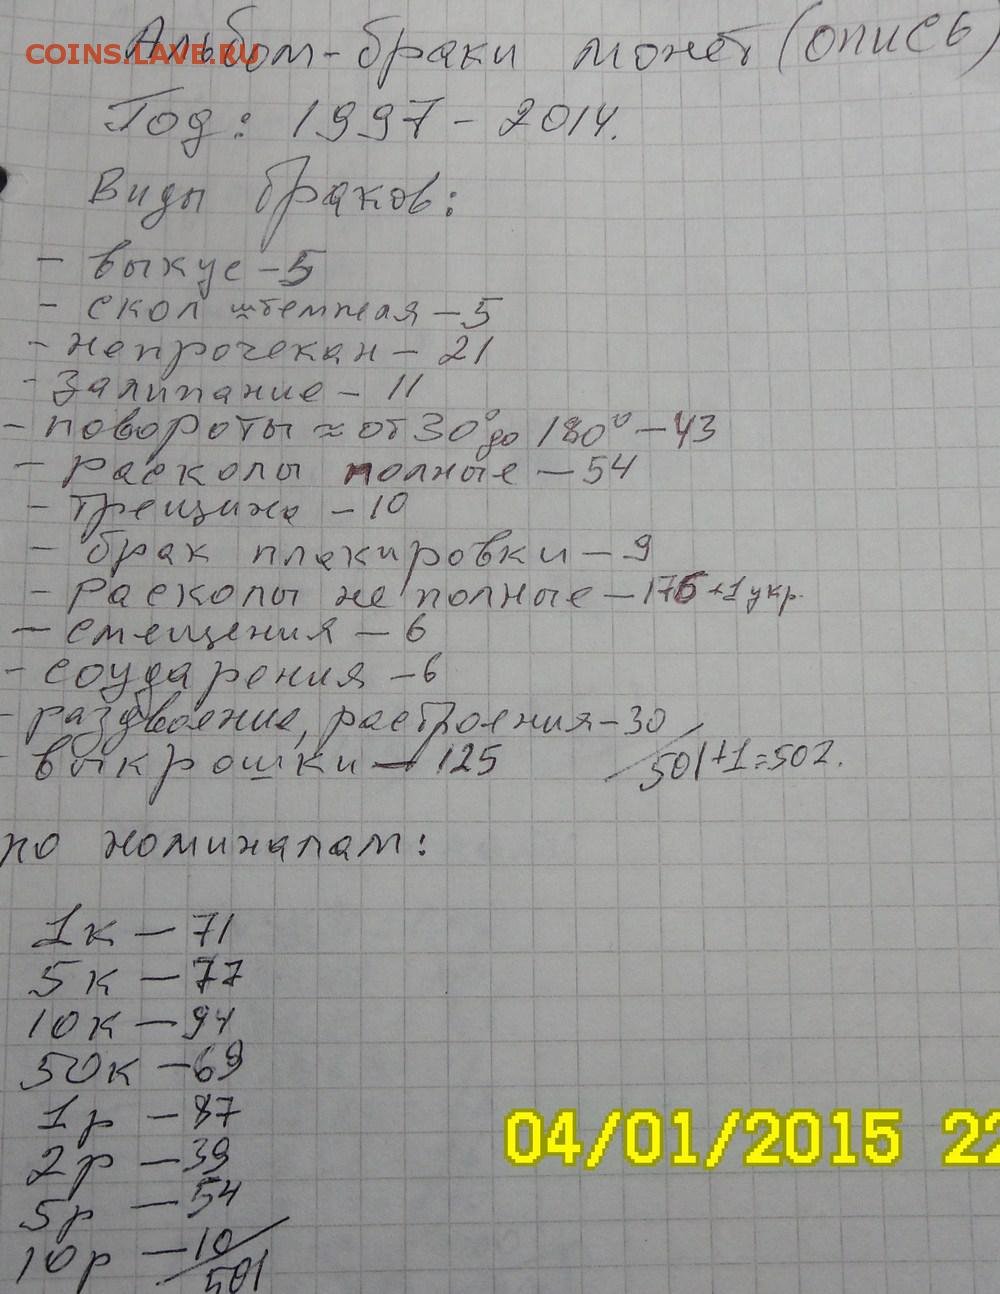 COINS.LAVE.RU
Альбом-браки монет (опись)
Год: 1997-2014.
Виды браков:
- выкус - 5
- скол штемпеля - 5
- непрочекан - 21
- залипание - 11
- повороты ≈ от 30° до 180° - 43
- расколы полные - 54
- трещина - 10
- брак плакировки - 9
- расколы не полные - 176 +1 укр.
- смещения - 6
- соударения - 6
- раздвоение, растроения - 30
- выкрошки - 125
501+1=502.
по номиналам:
1к - 71
5к - 77
10к - 94
50к - 69
1р - 87
2р - 39
5р - 54
10р - 10
501
04/01/2015 22